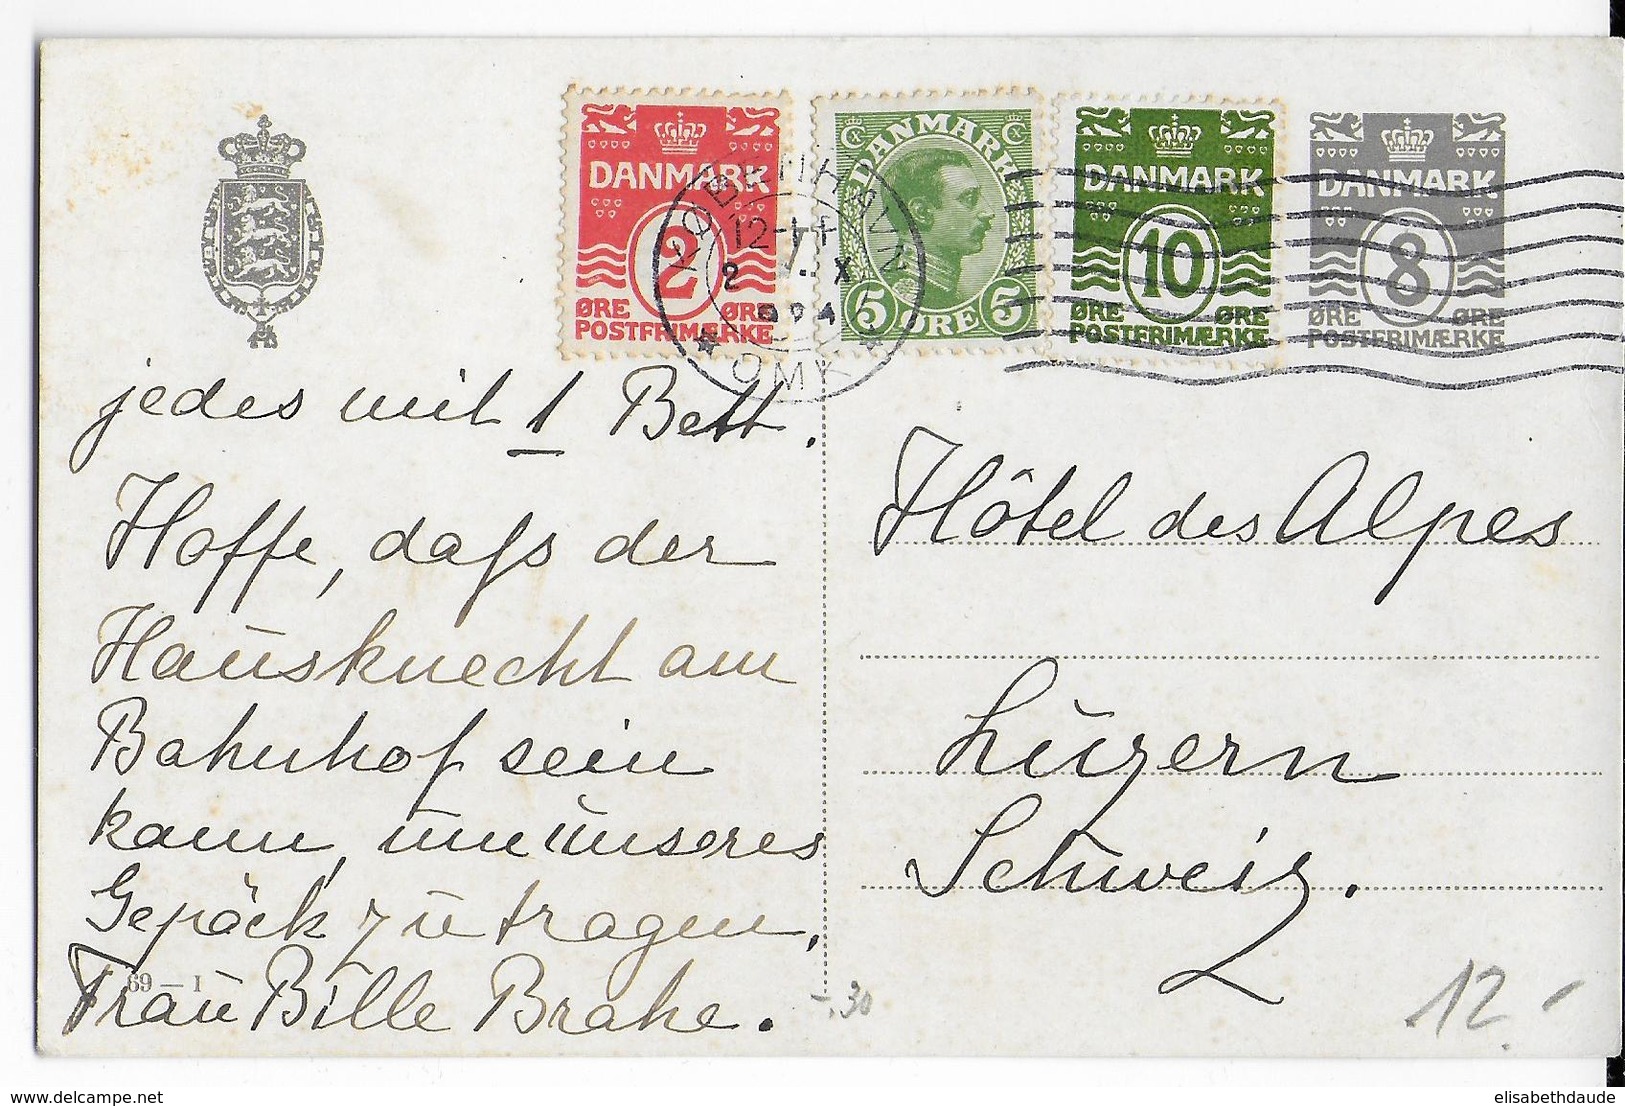 DANMARK
2
ØRE ØRE
POSTFRIMÆRKE
DANMARK
5 ØRE 5
DANMARK
10
ØRE ØRE
POSTFRIMÆRKE
DANMARK
8
ØRE ØRE
POSTFRIMÆRKE
KØBENHAVN
OMK
jedes mit 1 Bett.
Hoffe, dass der
Hausknecht am
Bahnhof sein
kann, um unseres
Gepäck zu tragen,
Frau Bille Brahe.
69 — I
Hôtel des Alpes
Luzern
Schweiz.
-.30
12.-
delcampe.com
elisabethdaude